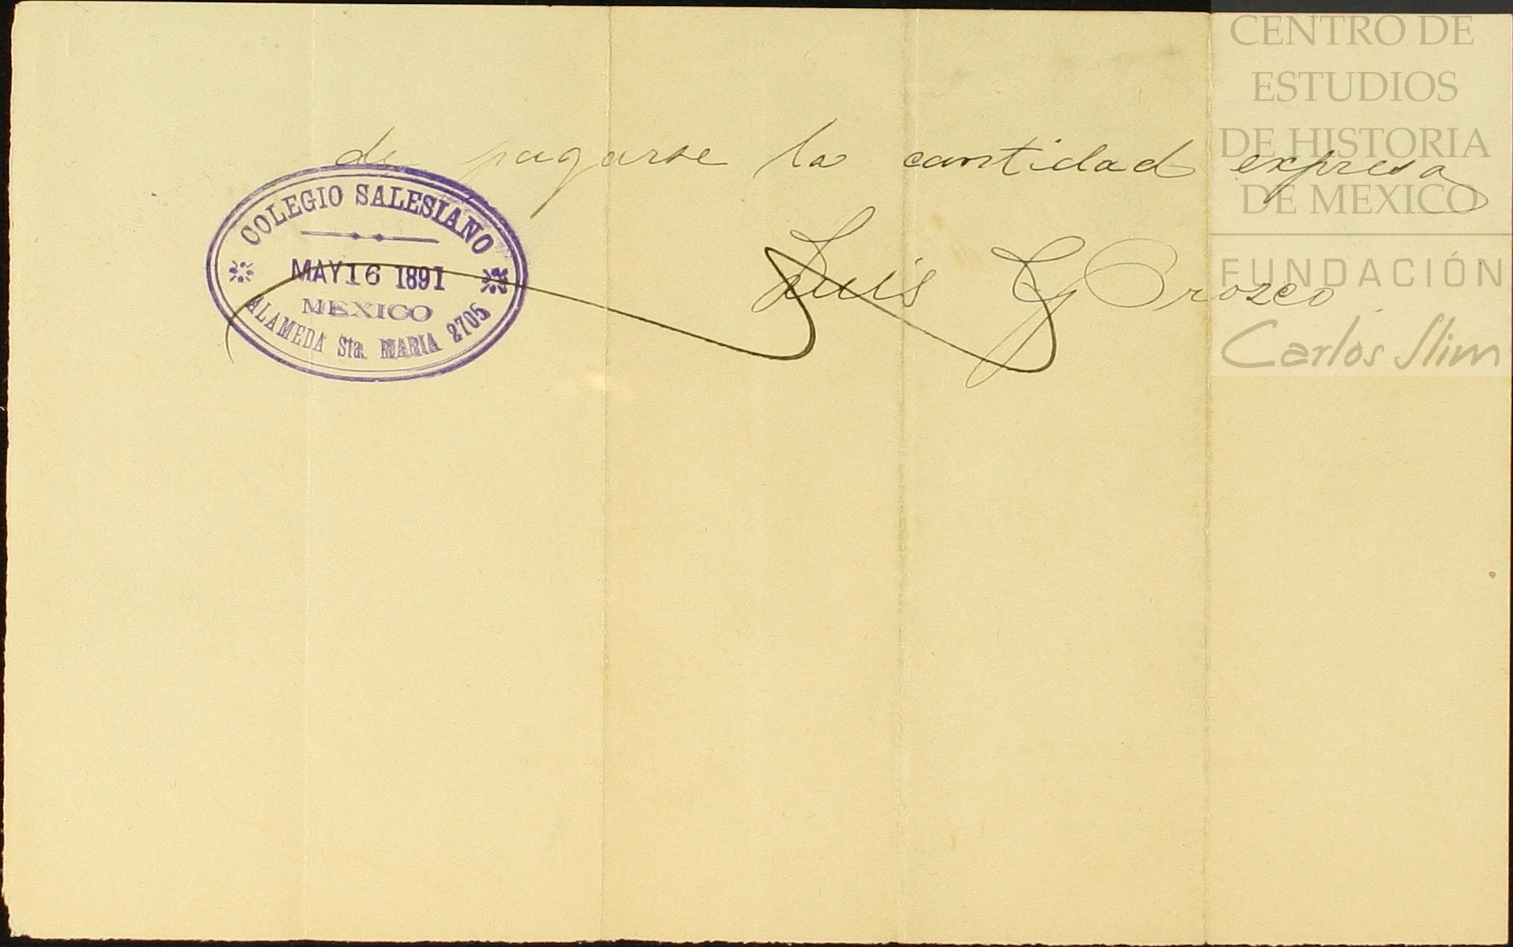 CENTRO DE
ESTUDIOS
DE HISTORIA
DE MEXICO
FUNDACIÓN
Carlos Slim
de pagarse la cantidad expresa
Luis G Orozco
COLEGIO SALESIANO
MAY 16 1891
MEXICO
ALAMEDA Sta. MARIA 2705